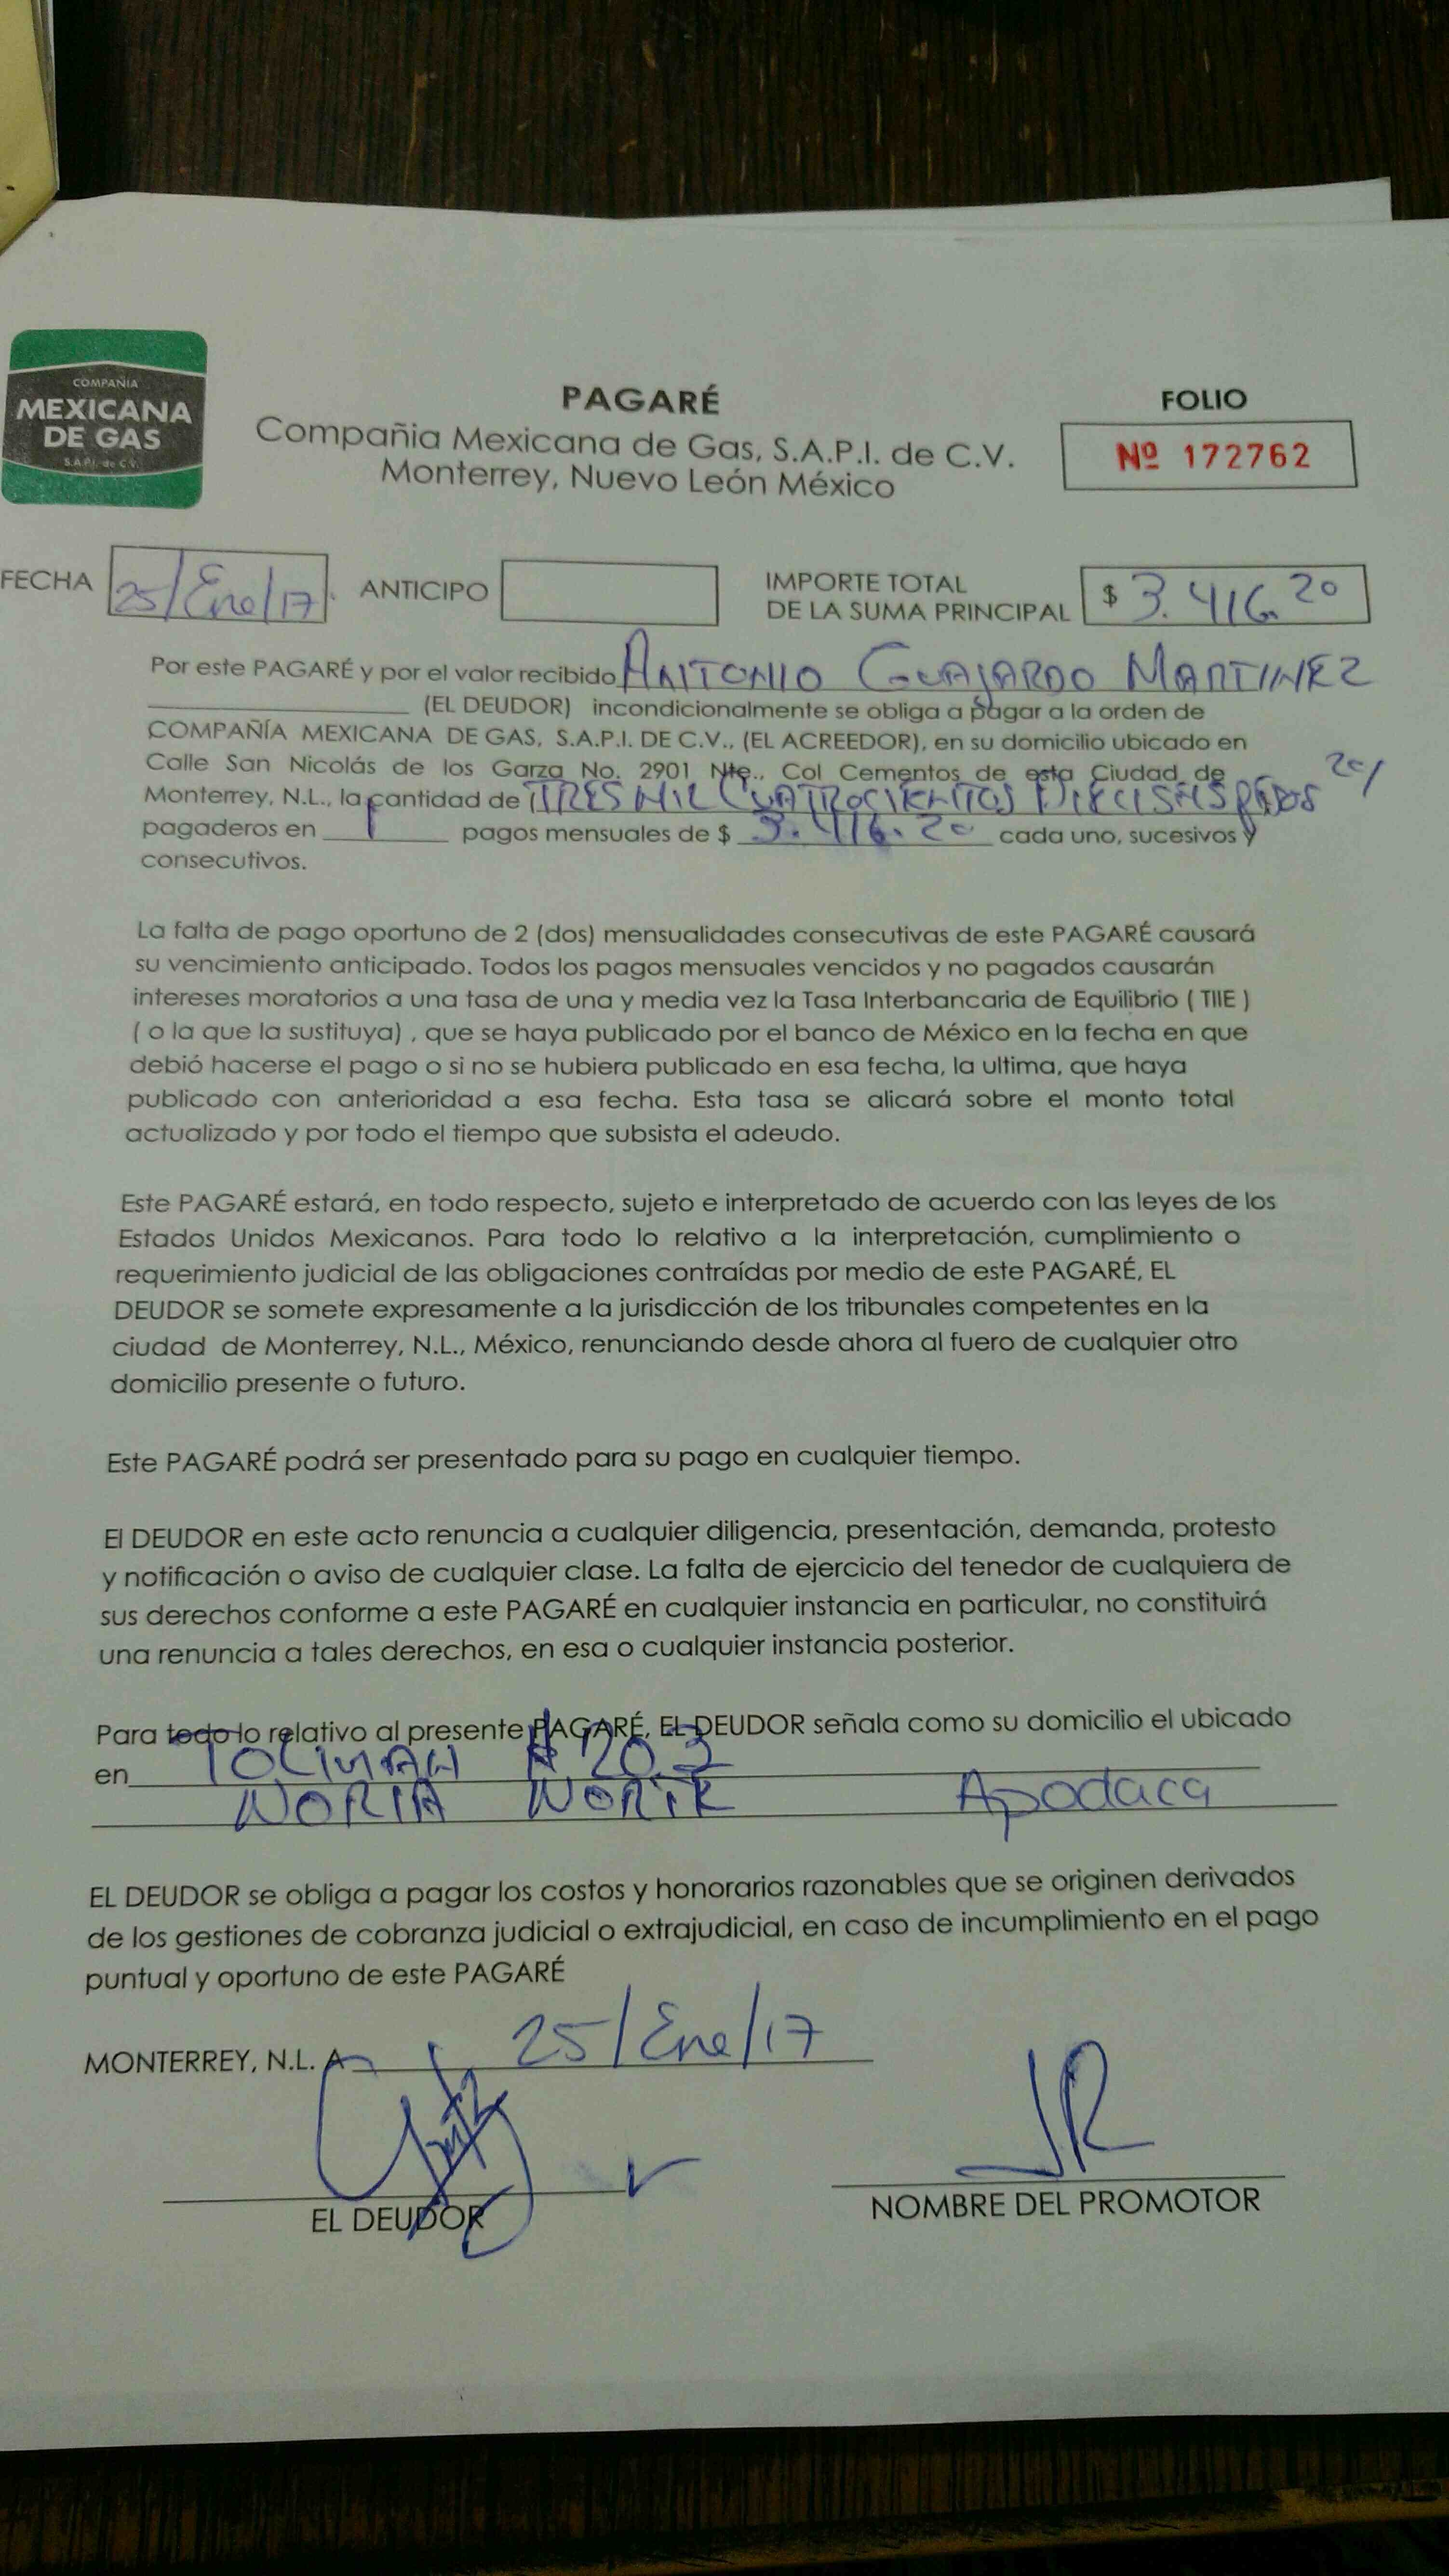 COMPAÑIA
MEXICANA
DE GAS
S.A.P.I. de C.V.
PAGARÉ
Compañia Mexicana de Gas, S.A.P.I. de C.V.
Monterrey, Nuevo León México
FOLIO
Nº 172762
FECHA 25/Ene/17. ANTICIPO
IMPORTE TOTAL
DE LA SUMA PRINCIPAL $ 3.416.20
Por este PAGARÉ y por el valor recibido ANTONIO GUAJARDO MARTINEZ
(EL DEUDOR) incondicionalmente se obliga a pagar a la orden de
COMPAÑÍA MEXICANA DE GAS, S.A.P.I. DE C.V., (EL ACREEDOR), en su domicilio ubicado en
Calle San Nicolás de los Garza No. 2901 Nte., Col Cementos de esta Ciudad de
Monterrey, N.L., la cantidad de (TRES MIL CUATROCIENTOS DIECISEIS PESOS 20/
pagaderos en 1 pagos mensuales de $ 3.416.20 cada uno, sucesivos y
consecutivos.
La falta de pago oportuno de 2 (dos) mensualidades consecutivas de este PAGARÉ causará
su vencimiento anticipado. Todos los pagos mensuales vencidos y no pagados causarán
intereses moratorios a una tasa de una y media vez la Tasa Interbancaria de Equilibrio ( TIIE )
( o la que la sustituya) , que se haya publicado por el banco de México en la fecha en que
debió hacerse el pago o si no se hubiera publicado en esa fecha, la ultima, que haya
publicado con anterioridad a esa fecha. Esta tasa se alicará sobre el monto total
actualizado y por todo el tiempo que subsista el adeudo.
Este PAGARÉ estará, en todo respecto, sujeto e interpretado de acuerdo con las leyes de los
Estados Unidos Mexicanos. Para todo lo relativo a la interpretación, cumplimiento o
requerimiento judicial de las obligaciones contraídas por medio de este PAGARÉ, EL
DEUDOR se somete expresamente a la jurisdicción de los tribunales competentes en la
ciudad de Monterrey, N.L., México, renunciando desde ahora al fuero de cualquier otro
domicilio presente o futuro.
Este PAGARÉ podrá ser presentado para su pago en cualquier tiempo.
El DEUDOR en este acto renuncia a cualquier diligencia, presentación, demanda, protesto
y notificación o aviso de cualquier clase. La falta de ejercicio del tenedor de cualquiera de
sus derechos conforme a este PAGARÉ en cualquier instancia en particular, no constituirá
una renuncia a tales derechos, en esa o cualquier instancia posterior.
Para todo lo relativo al presente PAGARÉ, EL DEUDOR señala como su domicilio el ubicado
en TOLIMAN # 1203
NORIA NORTE Apodaca
EL DEUDOR se obliga a pagar los costos y honorarios razonables que se originen derivados
de los gestiones de cobranza judicial o extrajudicial, en caso de incumplimiento en el pago
puntual y oportuno de este PAGARÉ
MONTERREY, N.L. A 25/Ene/17
JR
EL DEUDOR
NOMBRE DEL PROMOTOR